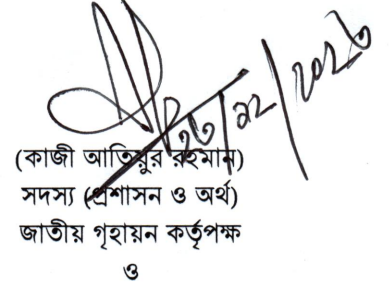 ২৩/১২/২০২৩
(কাজী আতিয়ুর রহমান)
সদস্য (প্রশাসন ও অর্থ)
জাতীয় গৃহায়ন কর্তৃপক্ষ
ও